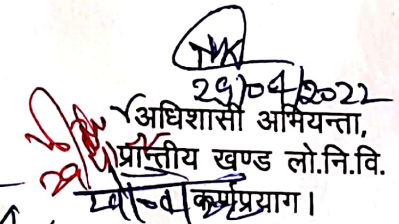 29/04/2022
अधिशासी अभियन्ता,
प्रान्तीय खण्ड लो.नि.वि.
कर्णप्रयाग।